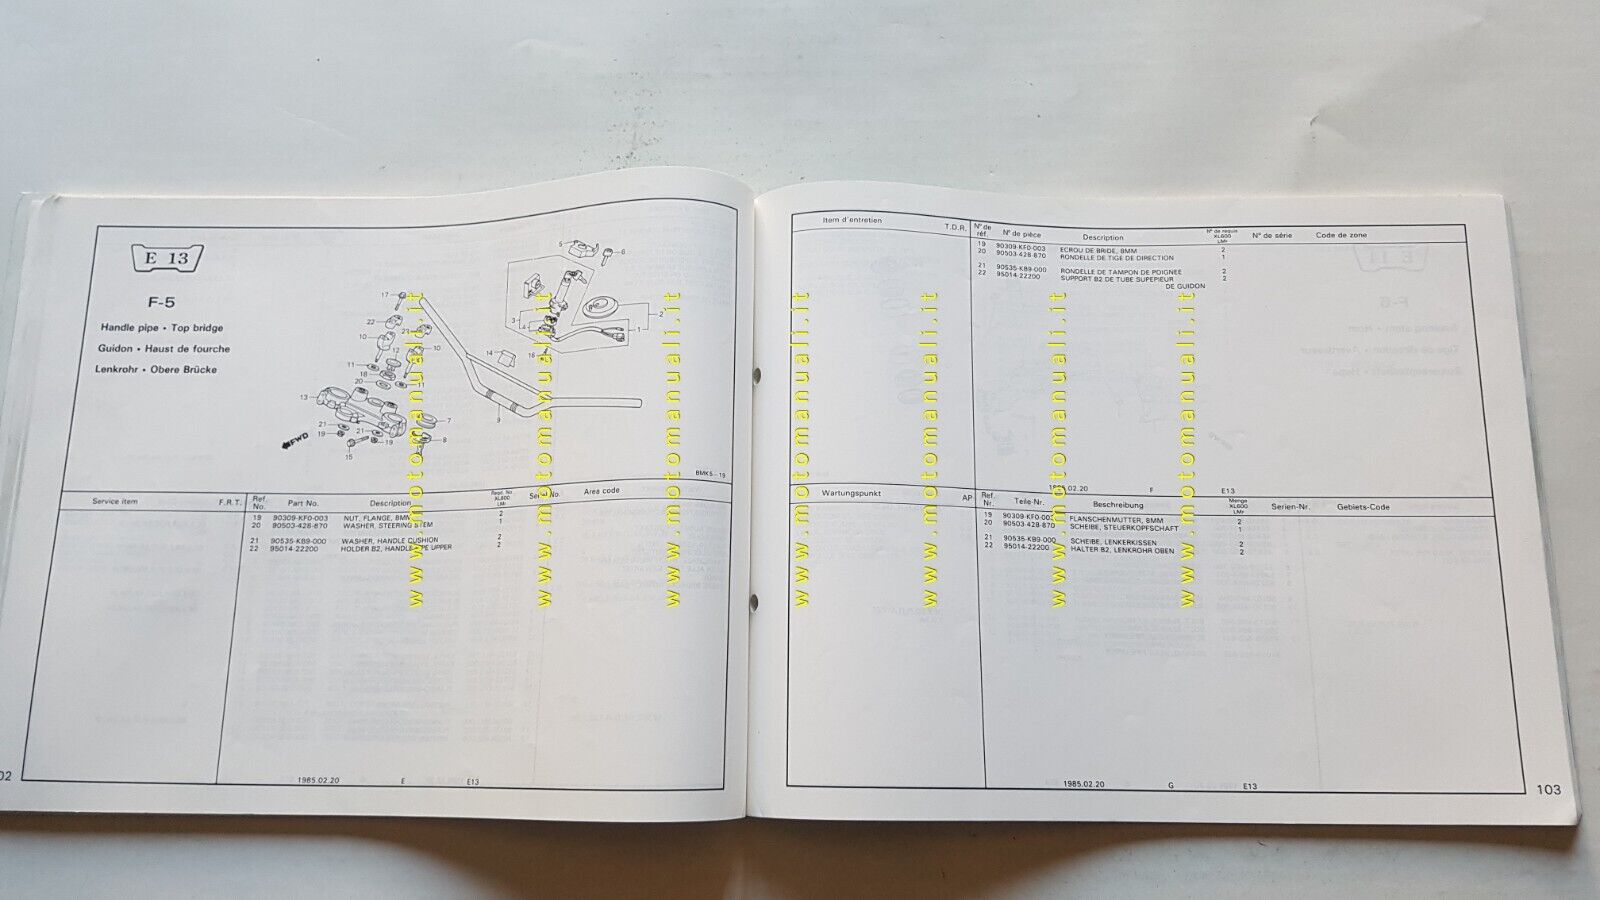 E 13
F-5
Handle pipe • Top bridge
Guidon • Haust de fourche
Lenkrohr • Obere Brücke
5
6
17
22
10
3
4
2
1
16
14
10
11
12
18
20
11
13
9
7
21
21
19
19
8
15
FWD
BMK5-19
Service item F.R.T. Ref. No. Part No. Description Reqd. No. XL600 LMF Serial No. Area code
19 90309-KF0-003 NUT, FLANGE, 8MM 2
20 90503-428-870 WASHER, STEERING STEM 1
21 90535-KB9-000 WASHER, HANDLE CUSHION 2
22 95014-22200 HOLDER B2, HANDLE PIPE UPPER 2
1985.02.20 E E13
02
Item d'entretien T.D.R. N° de réf. N° de pièce Description N° de requis XL600 LMF N° de série Code de zone
19 90309-KF0-003 ECROU DE BRIDE, 8MM 2
20 90503-428-870 RONDELLE DE TIGE DE DIRECTION 1
21 90535-KB9-000 RONDELLE DE TAMPON DE POIGNEE 2
22 95014-22200 SUPPORT B2 DE TUBE SUPERIEUR 2
DE GUIDON
1985.02.20 F E13
Wartungspunkt AP Ref. Nr. Teile-Nr. Beschreibung Menge XL600 LMF Serien-Nr. Gebiets-Code
19 90309-KF0-003 FLANSCHENMUTTER, 8MM 2
20 90503-428-870 SCHEIBE, STEUERKOPFSCHAFT 1
21 90535-KB9-000 SCHEIBE, LENKERKISSEN 2
22 95014-22200 HALTER B2, LENKROHR OBEN 2
1985.02.20 G E13
103
www.motomanuali.it
www.motomanuali.it
www.motomanuali.it
www.motomanuali.it
www.motomanuali.it
www.motomanuali.it
www.motomanuali.it